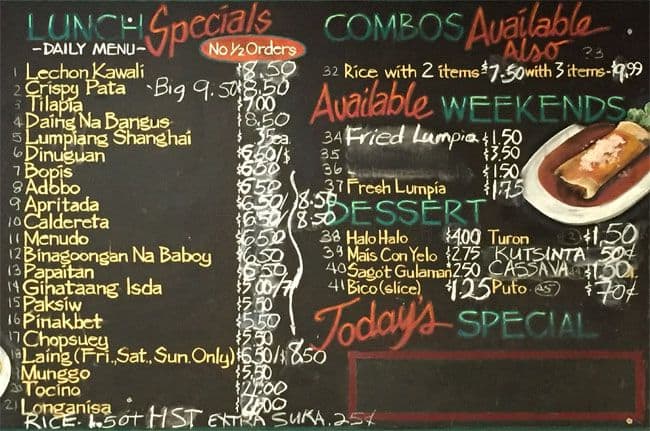 LUNCH Specials
-DAILY MENU-
No 1/2 Orders
1 Lechon Kawali $8.50
2 Crispy Pata Big 9.50 8.50
3 Tilapia 7.00
4 Daing Na Bangus 8.50
5 Lumpiang Shanghai
6 Dinuguan
7 Bopis 6.50
8 Adobo 6.50
9 Apritada 6.50/8.50
10 Caldereta 6.50/8.50
11 Menudo 6.50
12 Binagoongan Na Baboy 6.50
13 Papaitan 6.50
14 Gihataang Isda
15 Paksiw 5.50
16 Pinakbet 5.50
17 Chopsuey 5.50
18 Laing (Fri., Sat., Sun. Only) 6.50/$8.50
Munggo 5.50
Tocino
21 Longanisa
RICE. 1.50+ HST EXTRA SUKA. 25¢
COMBOS Available
Also
32 Rice with 2 items $7.50 with 3 items-$9.99
Available WEEKENDS
34 Fried Lumpia $1.50
35 3.50
36 1.50
37 Fresh Lumpia 1.75
DESSERT
38 Halo Halo $4.00 Turon $1.50
39 Mais Con Yelo $2.75 KUTSINTA 50¢
40 Sagot Gulaman 2.50 CASSAVA
41 Bico (slice) $1.25 Puto 45 $70¢
Today's SPECIAL